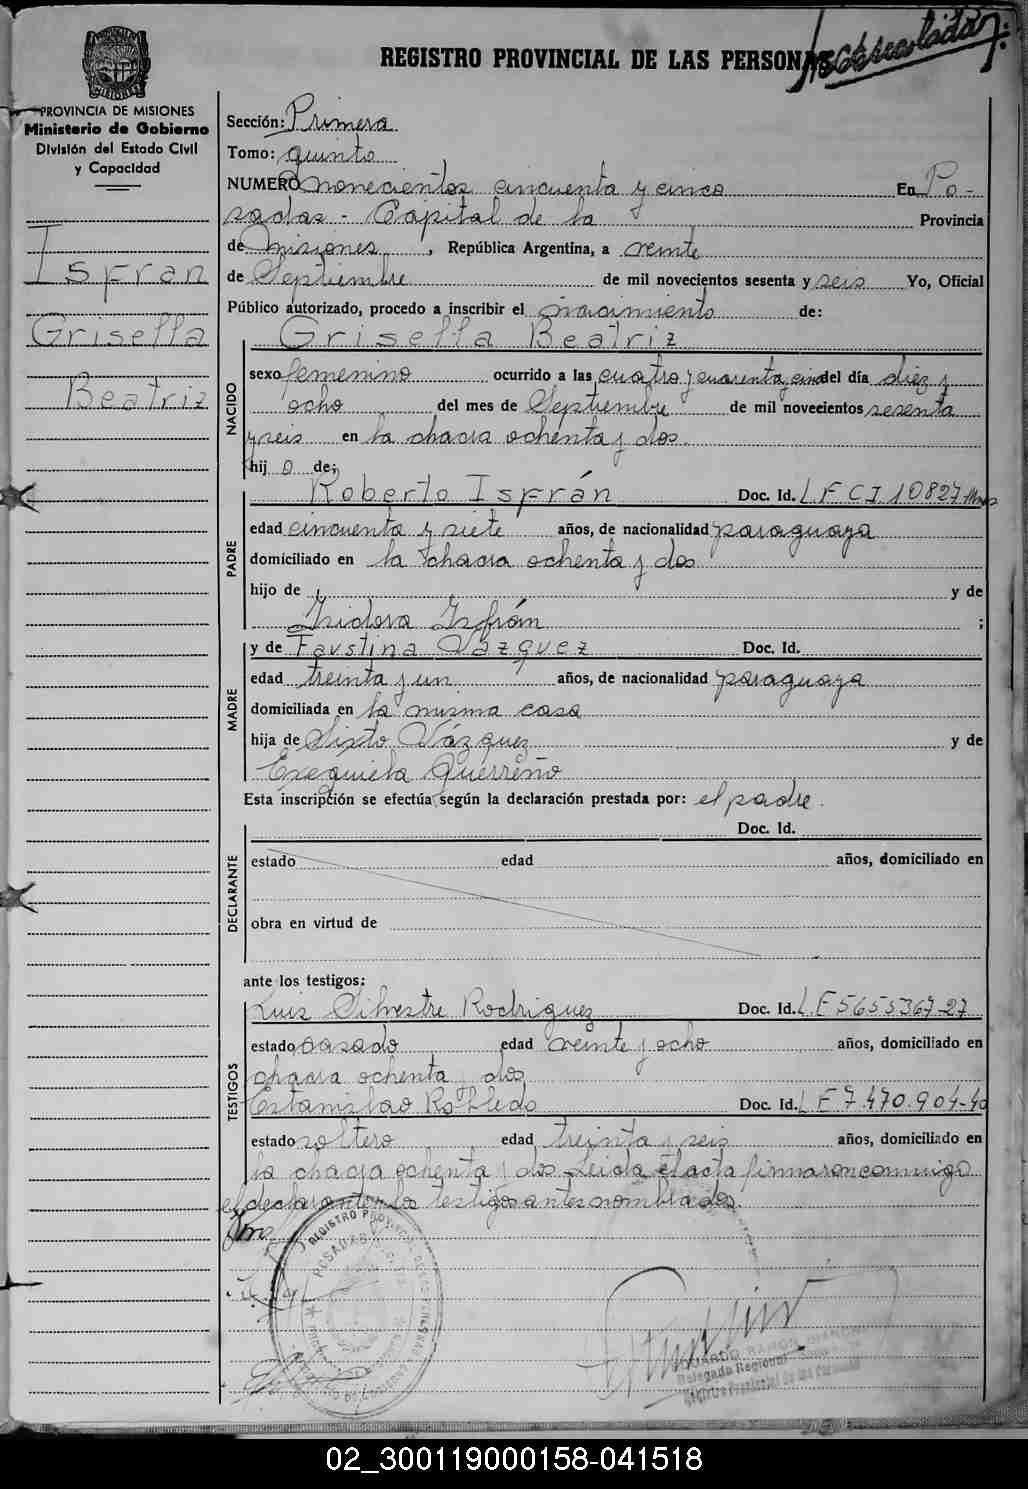 REGISTRO PROVINCIAL DE LAS PERSONAS
PROVINCIA DE MISIONES
Ministerio de Gobierno
División del Estado Civil
y Capacidad
Isfran
Grisella
Beatriz
Sección: Primera
Tomo: quinto
NUMERO novecientos cincuenta y cinco En Po-
sadas - Capital de la Provincia
de Misiones, República Argentina, a veinte
de Septiembre de mil novecientos sesenta y seis Yo, Oficial
Público autorizado, procedo a inscribir el nacimiento de:
Grisella Beatriz
NACIDO
sexo femenino ocurrido a las cuatro y cuarenta y cinco del día diez y
ocho del mes de Septiembre de mil novecientos sesenta
y seis en la chacra ochenta y dos.
hij a de;
PADRE
Roberto Isfrán Doc. Id. L.F C I 10827
edad cincuenta y siete años, de nacionalidad paraguaya
domiciliado en la chacra ochenta y dos
hijo de y de
Isidora Isfrán ;
MADRE
y de Faustina Vázquez Doc. Id.
edad treinta y un años, de nacionalidad paraguaya
domiciliada en la misma casa
hija de Sixto Vázquez y de
Exequiela Guerreño
Esta inscripción se efectúa según la declaración prestada por: el padre.
DECLARANTE
Doc. Id.
estado edad años, domiciliado en
obra en virtud de
ante los testigos:
TESTIGOS
Luis Silvestre Rodriguez Doc. Id. L.E 5655367-27
estado casado edad veinte y ocho años, domiciliado en
chacra ochenta y dos
Estanislao Robledo Doc. Id. L E 7.470.904-40
estado soltero edad treinta y seis años, domiciliado en
la chacra ochenta y dos Leida el acta firmaron conmigo
el declarante y los testigos antes nombrados.
REGISTRO PROVINCIAL DE LAS PERSONAS
POSADAS
Delegado Regional
Registro Provincial de las Personas
02_300119000158-041518